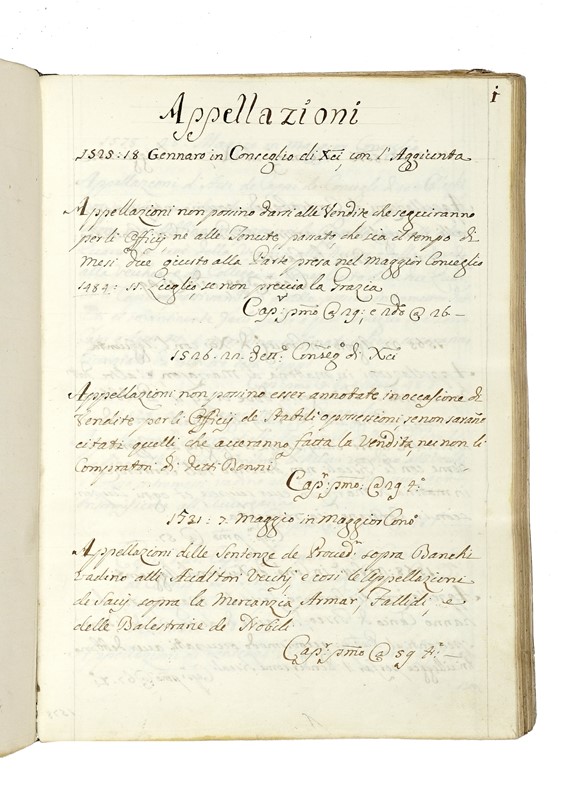 1
Appellazioni
1525: 18 Gennaro in Conseglio di Xci, con l'Aggiunta
Appellazioni non possino darsi alle Vendite che seguiranno
per li Officij ne alle Tenute, passato che sia il tempo di
Mesi due giusto alla Parte presa nel Maggior Conseglio
1484: 11 Luglio, se non preccia la Grazia
Cap.r pmo @ 29; e 2do @ 26 —
1526. 22. dett.o Conseg.o di Xci
Appellazioni non possino esser annotate in occasione di
Vendite per li Officij de Stabili o possessioni, se non sarano
citati quelli che averanno fatta la Vendita, nec non li
Compratori di detti Benni
Cap.r pmo: @ 29 t.o
1721: 7. Maggio in Maggior Cono
Appellazioni delle Sentenze de Proved.ri sopra Banchi
vadino alli Auditori Vecchj e così le Appellazioni
de Savij sopra la Mercanzia Armar, Fallidi, e
delle Balestrarie de Nobili
Cap.r pmo @ 59 t.o —